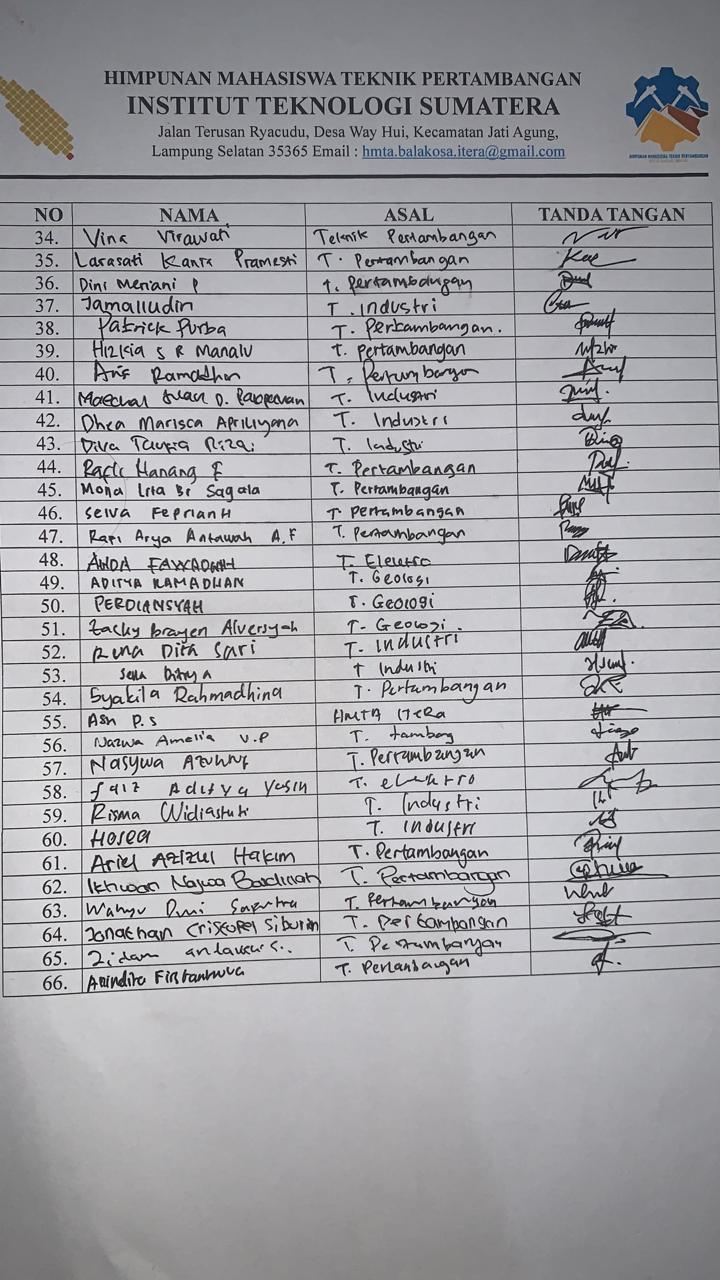 HIMPUNAN MAHASISWA TEKNIK PERTAMBANGAN
INSTITUT TEKNOLOGI SUMATERA
Jalan Terusan Ryacudu, Desa Way Hui, Kecamatan Jati Agung,
Lampung Selatan 35365 Email : hmta.balakosa.itera@gmail.com
HIMPUNAN MAHASISWA TEKNIK PERTAMBANGAN
NO NAMA ASAL TANDA TANGAN
34. Vina Virawati Teknik Pertambangan
35. Larasati Kanta Pramesti T. Pertambangan
36. Dini Meriani P t. pertambangan
37. Jamalludin T. industri
38. Patrick Purba T. Pertambangan.
39. Hizkia S R Manalu T. pertambangan
40. Aris Ramadhan T. Pertambangan
41. D. T. Industri
42. Dhea Marisca Apriliyana T. Industri
43. Diva Rizqi T. Industri
44. Hanang F T. Pertambangan
45. Mona Br Sagala T. Pertambangan
46. T Pertambangan
47. Rafi Arya A.F T. Pertambangan
48. T. Elektro
49. ADITYA RAMADHAN T. Geologi
50. PERDIANSYAH T. Geologi
51. Zacky brayen Alversyah T- Geologi.
52. Rena Dita Sari T- Industri
53. T Industri
54. Syakila Rahmadhina T. Pertambangan
55. P.S HMTA ITeRa
56. Nazwa Amelia V.P T. tambang
57. Nasywa T. Pertambangan
58. faiz Aditya Yasin T. elektro
59. Risma Widiastuti T. Industri
60. Hosea T. Industri
61. Ariel AZIZUL Hakim T. Pertambangan
62. Ikhwan Najwa T. Pertambangan
63. Wahyu Dwi Saputra T. Pertambangan
64. Jonathan Cristopel T. Pertambangan
65. Zidan T. Pertambangan
66. Anindito T. Pertambangan